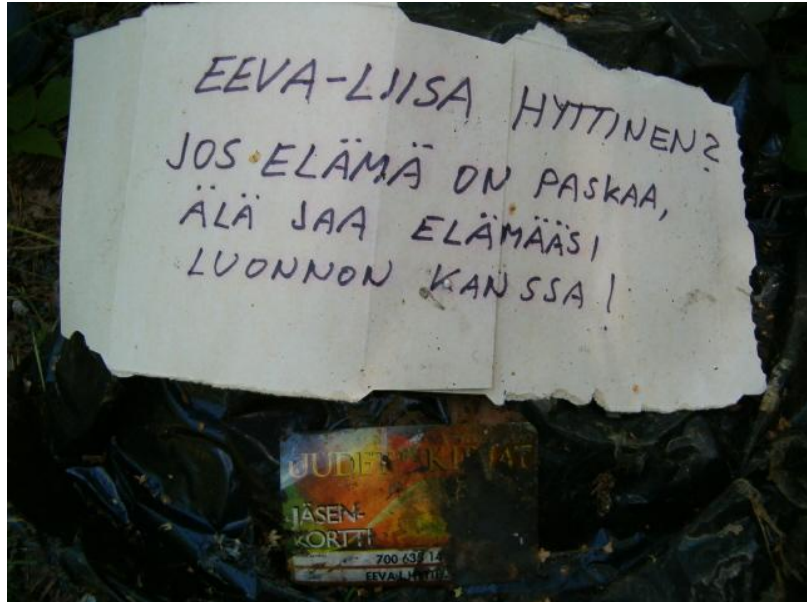 EEVA-LIISA HYTTINEN?
JOS ELÄMÄ ON PASKAA,
ÄLÄ JAA ELÄMÄÄSI
LUONNON KANSSA!
JÄSEN-
KORTTI
700 63